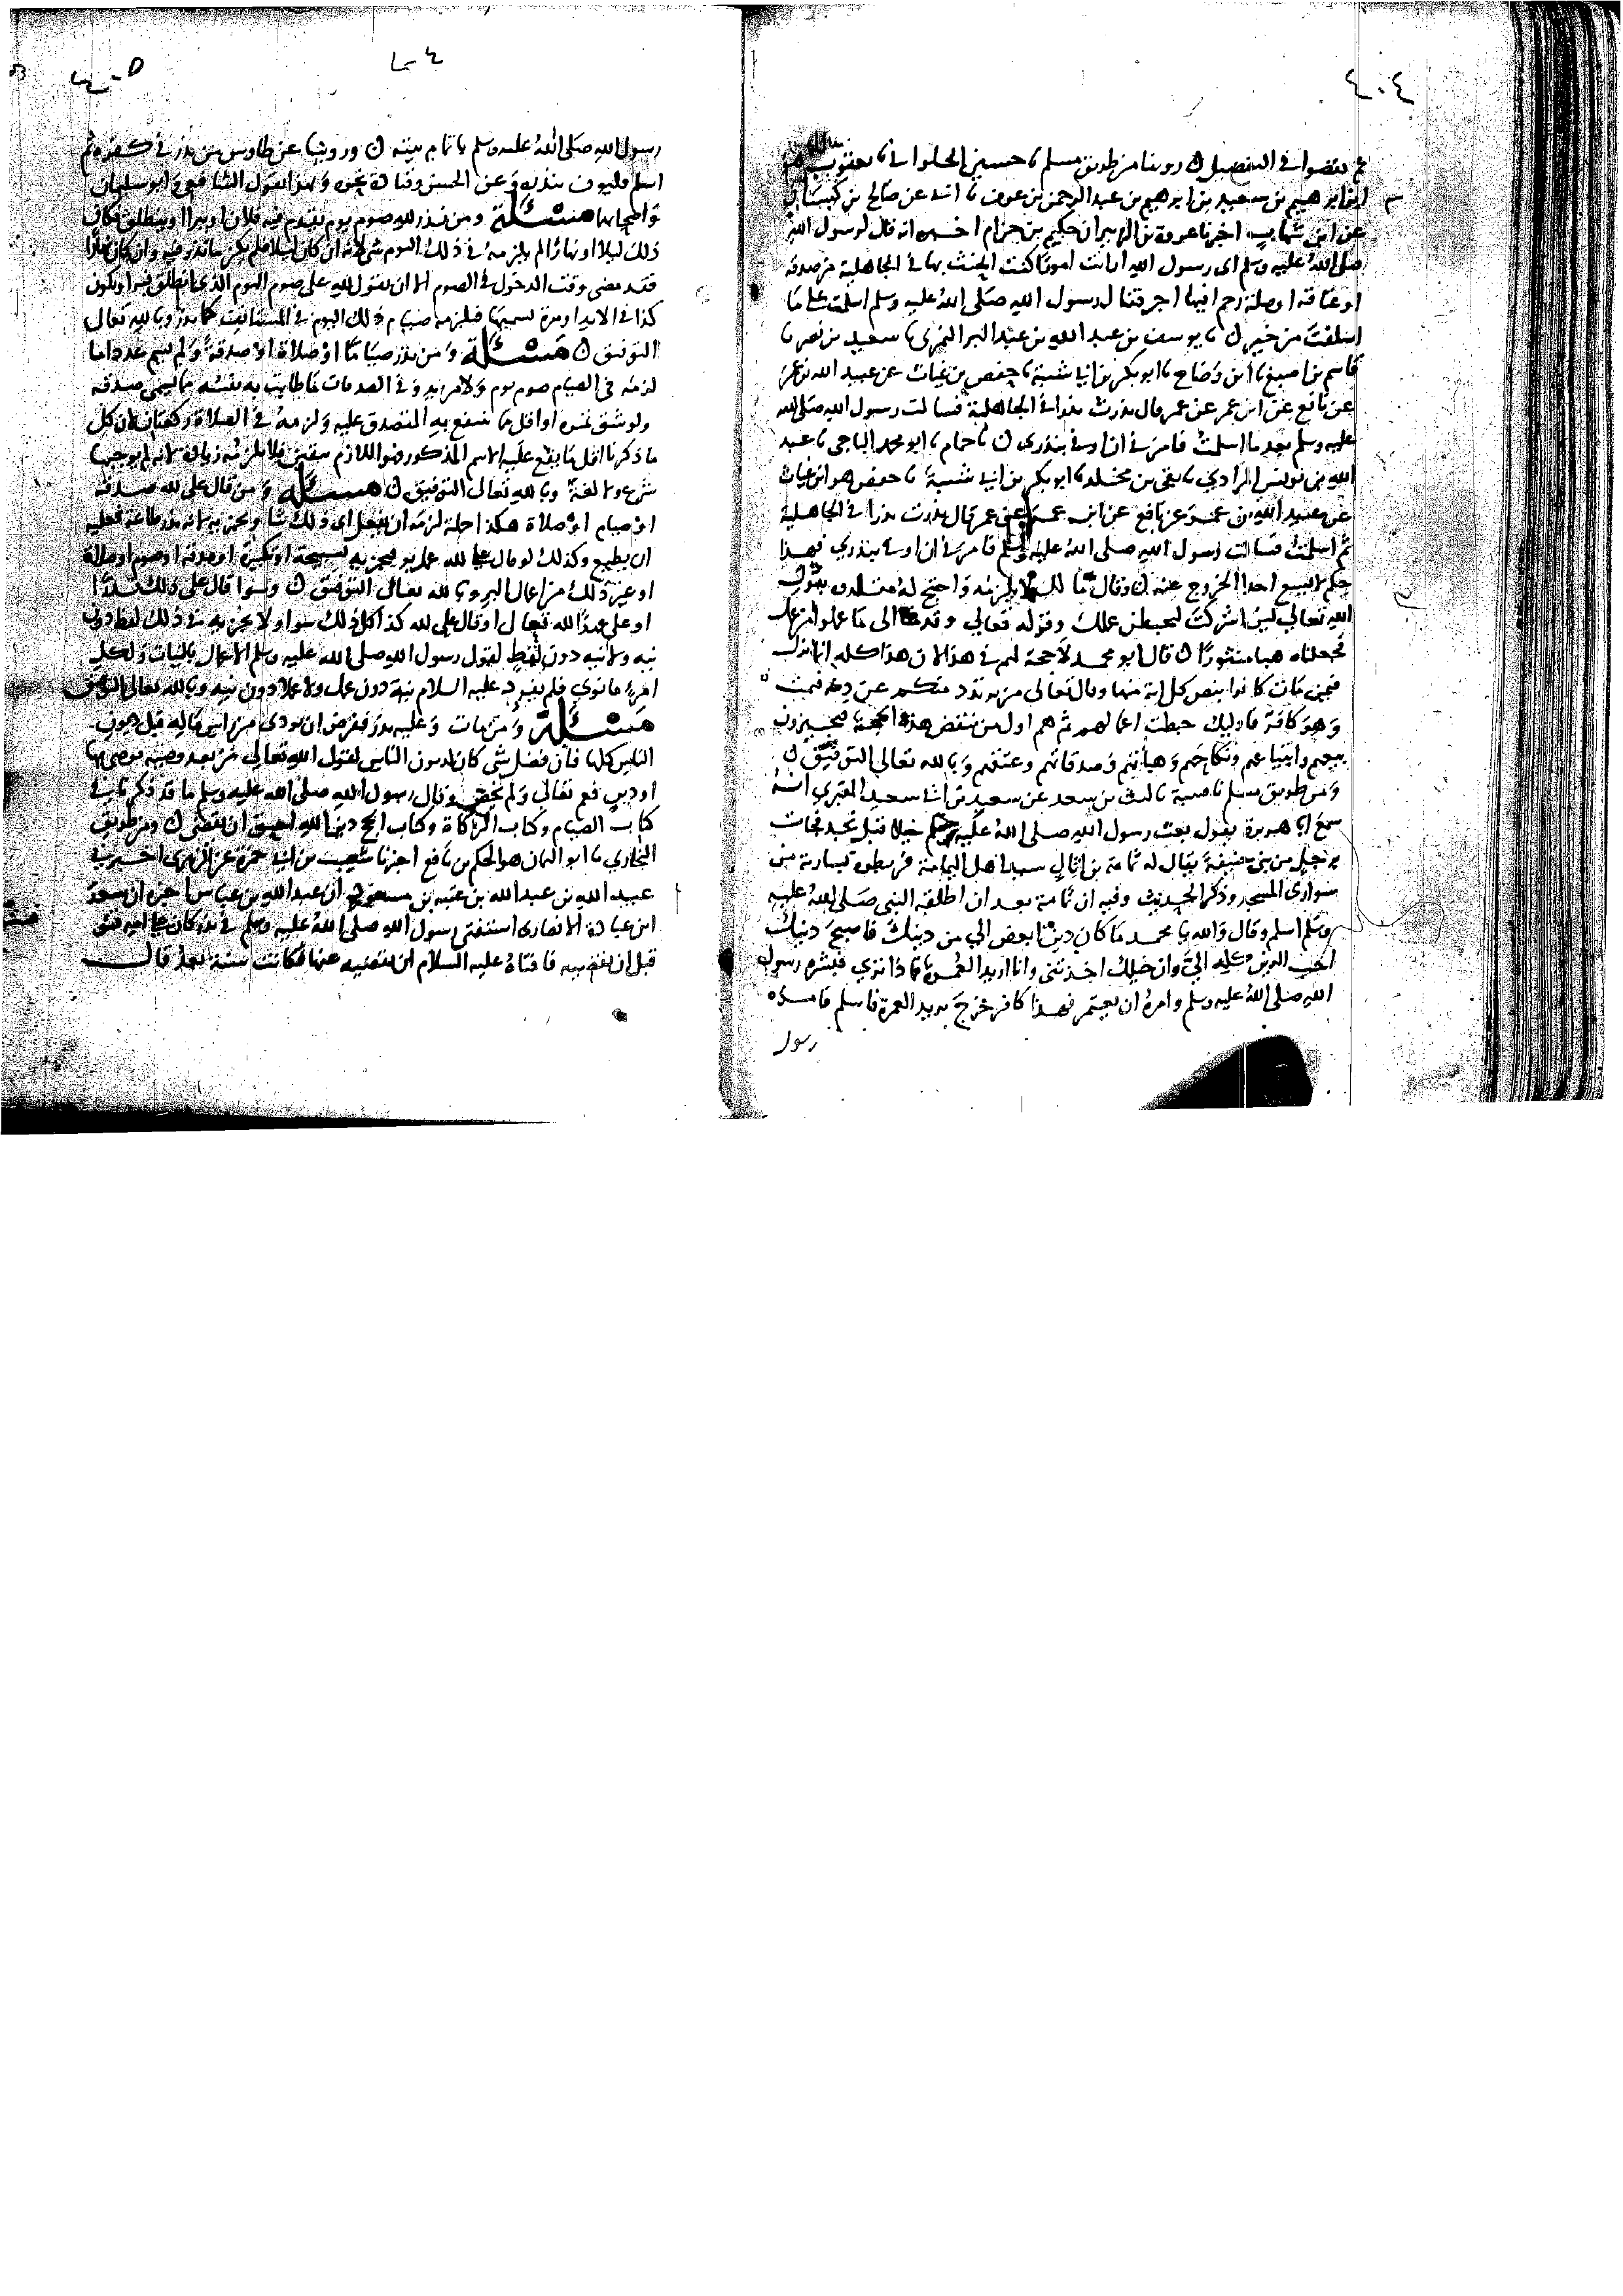 ٤٠٤
ثم نقضوا في التفصيل ن روينا من طريق مسلم نا حسين الحلواني نا يعقوب هو
ابن ابرهيم بن سعيد بن ابرهيم بن عبد الرحمن بن عوف نا ابي عن صالح بن كيسان
عن ابن شهاب اخبرنا عروة بن الزبير ان حكيم بن حزام اخبره انه قال لرسول الله
صلى الله عليه وسلم اى رسول الله ارايت امورا كنت اتحنث بها في الجاهلية من صدقة
او عتاقة او صلة رحم افيها اجر فقال رسول الله صلى الله عليه وسلم اسلمت على ما
اسلفت من خير ن نا يوسف بن عبد الله بن عبد البر النمرى نا سعيد بن نصر نا
قاسم بن اصبغ نا ابن وضاح نا ابو بكر بن ابي شيبة نا حفص بن غياث عن عبيد الله بن عمر
عن نافع عن ابن عمر عن عمر قال نذرت نذرا في الجاهلية فسالت رسول الله صلى الله
عليه وسلم بعد ما اسلمت فامرني ان اوفي بنذرى ن نا حمام نا ابو محمد الباجي نا عبد
الله بن يونس المرادي نا بقي بن مخلد نا ابو بكر بن ابي شيبة نا حفص هو ابن غياث
عن عبيد الله بن عمر عن نافع عن ابن عمر عن عمر قال نذرت نذرا في الجاهلية
ثم اسلمت فسالت رسول الله صلى الله عليه وسلم فامرني ان اوفي بنذري فهذا
حكم لا يسع احدا الخروج عنه ن وقال مالك لا يلزمه واحتج له مقلدوه بقول
الله تعالي لئن اشركت ليحبطن عملك وقوله تعالي وقدمنا الى ما عملوا من عمل
فجعلناه هبا منثورا ن قال ابو محمد لا حجة لهم في هذا لان هذا كله انما نزل
فيمن مات كافرا بنص كل اية منها وقال تعالى من يرتدد منكم عن دينه فيمت
وهو كافر فاوليك حبطت اعمالهم ثم هم اول من ينقض هذه الحجة فيجيزون
بيعهم وابتياعهم ونكاحهم وهباتهم وصدقاتهم وعتقهم وبالله تعالى التوفيق ن
ومن طريق مسلم نا قتيبة نا ليث بن سعد عن سعيد بن ابي سعيد المقبري انه
سمع ابا هريرة يقول بعث رسول الله صلى الله عليه وسلم خيلا قبل نجد فجات
برجل من بني حنيفة يقال له ثمامة بن اثال سيد اهل اليمامة فربطوه بسارية من
سوارى المسجد وذكر الحديث وفيه ان ثمامة بعد ان اطلقه النبي صلى الله عليه
وسلم اسلم وقال والله يا محمد ما كان دين ابغض الي من دينك فاصبح دينك
احب الدين كله الي وان خيلك اخذتني وانا اريد العمرة فماذا ترى فبشره رسول
الله صلى الله عليه وسلم وامره ان يعتمر فهذا كافر خرج يريد العمرة فاسلم فامره
رسول
٤٠٥
رسول الله صلى الله عليه وسلم باتمام نيته ن وروينا عن طاوس من نذر في كفره ثم
اسلم فليوف بنذره وعن الحسن وقتادة نحوه وبهذا يقول الشافعي وابو سليمان
واصحابهما مسئلة ومن نذر لله صوم يوم يقدم فيه فلان او يبرا او ينطلق فكان
ذلك ليلا او نهارا لم يلزمه في ذلك اليوم شي لانه ان كان ليلا فلم يكن ما نذر فيه وان كان نهارا
فقد مضى وقت الدخول في الصوم الا ان يقول لله على صوم اليوم الذي ينطلق فيه او يكون
كذا في الابد او مدة يسميها فيلزمه صيام ذلك اليوم في المستانف كما نذر وبالله تعالى
التوفيق ن مسئلة ومن نذر صياما او صلاة او صدقة ولم يسم عددا ما
لزمه في الصيام صوم يوم ولا مزيد وفي الصدقات ما طابت به نفسه مما يسمى صدقة
ولو شق تمره او اقل مما ينتفع به المتصدق عليه ولزمه في الصلاة ركعتان لان كل
ما ذكرنا اقل ما يقع عليه الاسم المذكور فهو اللازم بيقين فلا يلزمه زيادة لانه لم يوجبها
شرع ولا لغة وبالله تعالى التوفيق ن مسئلة ومن قال علي لله صدقة
او صيام او صلاة هكذا جملة لزمه ان يفعل اي ذلك شا ويجزيه لانه نذر طاعة فعليه
ان يطيع وكذلك لو قال على لله عمل بر فيجزيه تسبيحة او تكبيرة او صدقة او صوم او صلاة
او غير ذلك من اعمال البر وبالله تعالى التوفيق ن وسوا قال على ذلك نذرا
او على عهد الله تعالى او قال علي لله كذا كل ذلك سوا ولا يجزيه في ذلك لفظ دون
نية ولا نية دون لفظ لقول رسول الله صلى الله عليه وسلم الاعمال بالنيات ولكل
امرئ ما نوي فلم يفرد عليه السلام نية دون عمل ولا عملا دون نية وبالله تعالى التوفيق
مسئلة ومن مات وعليه نذر ففرض ان يودى من راس ماله قبل ديون
الناس كلها فان فضل شي كان لديون الناس لقول الله تعالى من بعد وصية يوصى بها
او دين فعم تعالي ولم يخص وقال رسول الله صلى الله عليه وسلم ما قد ذكرنا في
كتاب الصيام وكتاب الزكاة وكتاب الحج دين الله احق ان يقضى ن ومن طريق
البخاري نا ابو اليمان هو الحكم بن نافع اخبرنا شعيب بن ابي حمزة عن الزهرى اخبرني
عبيد الله بن عبد الله بن عتبة بن مسعود ان عبد الله بن عباس اخبره ان سعد
ابن عبادة الانصارى استفتى رسول الله صلى الله عليه وسلم في نذر كان على امه فتوفيت
قبل ان تقضيه فافتاه عليه السلام ان يقضيه عنها فكانت سنة بعد قال